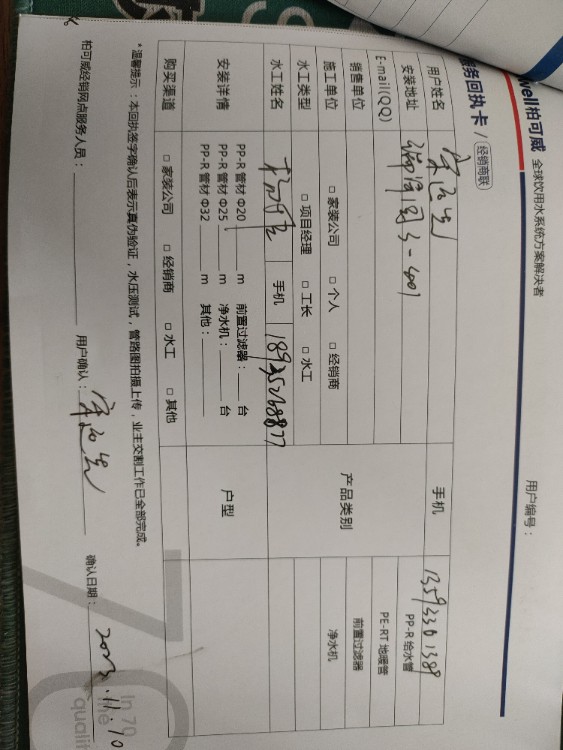 well柏可威 全球饮用水系统方案解决者
用户编号：
务回执卡 / 经销商联
用户姓名 手机 13593301389
安装地址 3-401 PP-R 给水管
E-mail(QQ) PE-RT 地暖管
销售单位 产品类别 前置过滤器
施工单位 □ 家装公司 □ 个人 □ 经销商 净水机
水工类型 □ 项目经理 □ 工长 □ 水工
水工姓名 手机 18935268877
安装详情 PP-R 管材 Φ20 m 前置过滤器： 台 户型
PP-R 管材 Φ25 m 净水机： 台
PP-R 管材 Φ32 m 其他：
购买渠道 □ 家装公司 □ 经销商 □ 水工 □ 其他
*温馨提示：本回执签字确认后表示真伪验证，水压测试，管路图拍摄上传，业主交割工作已全部完成。
柏可威经销网点服务人员： 用户确认： 确认日期： 2023.11.10
In 70
qualit